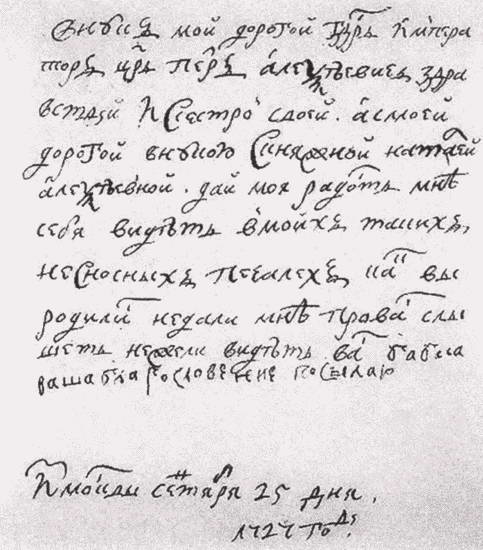 внукъ мой дорогой гдрь Импера
торъ црь петръ алеѯѣевичъ здра
вствуй И Сестрой своей. асмоей
дорогой внукою Скняжной наталей
алеѯѣевной. дай моя радость мнѣ
себя видѣть вмойхъ такихъ,
неСносныхъ печалехъ как вы
родилис недали мнѣ проваc слы
шеть нежели видѣть вас бабка
ваша благословение посылаю
Измосквы сентября 25 дня.
1727 году.